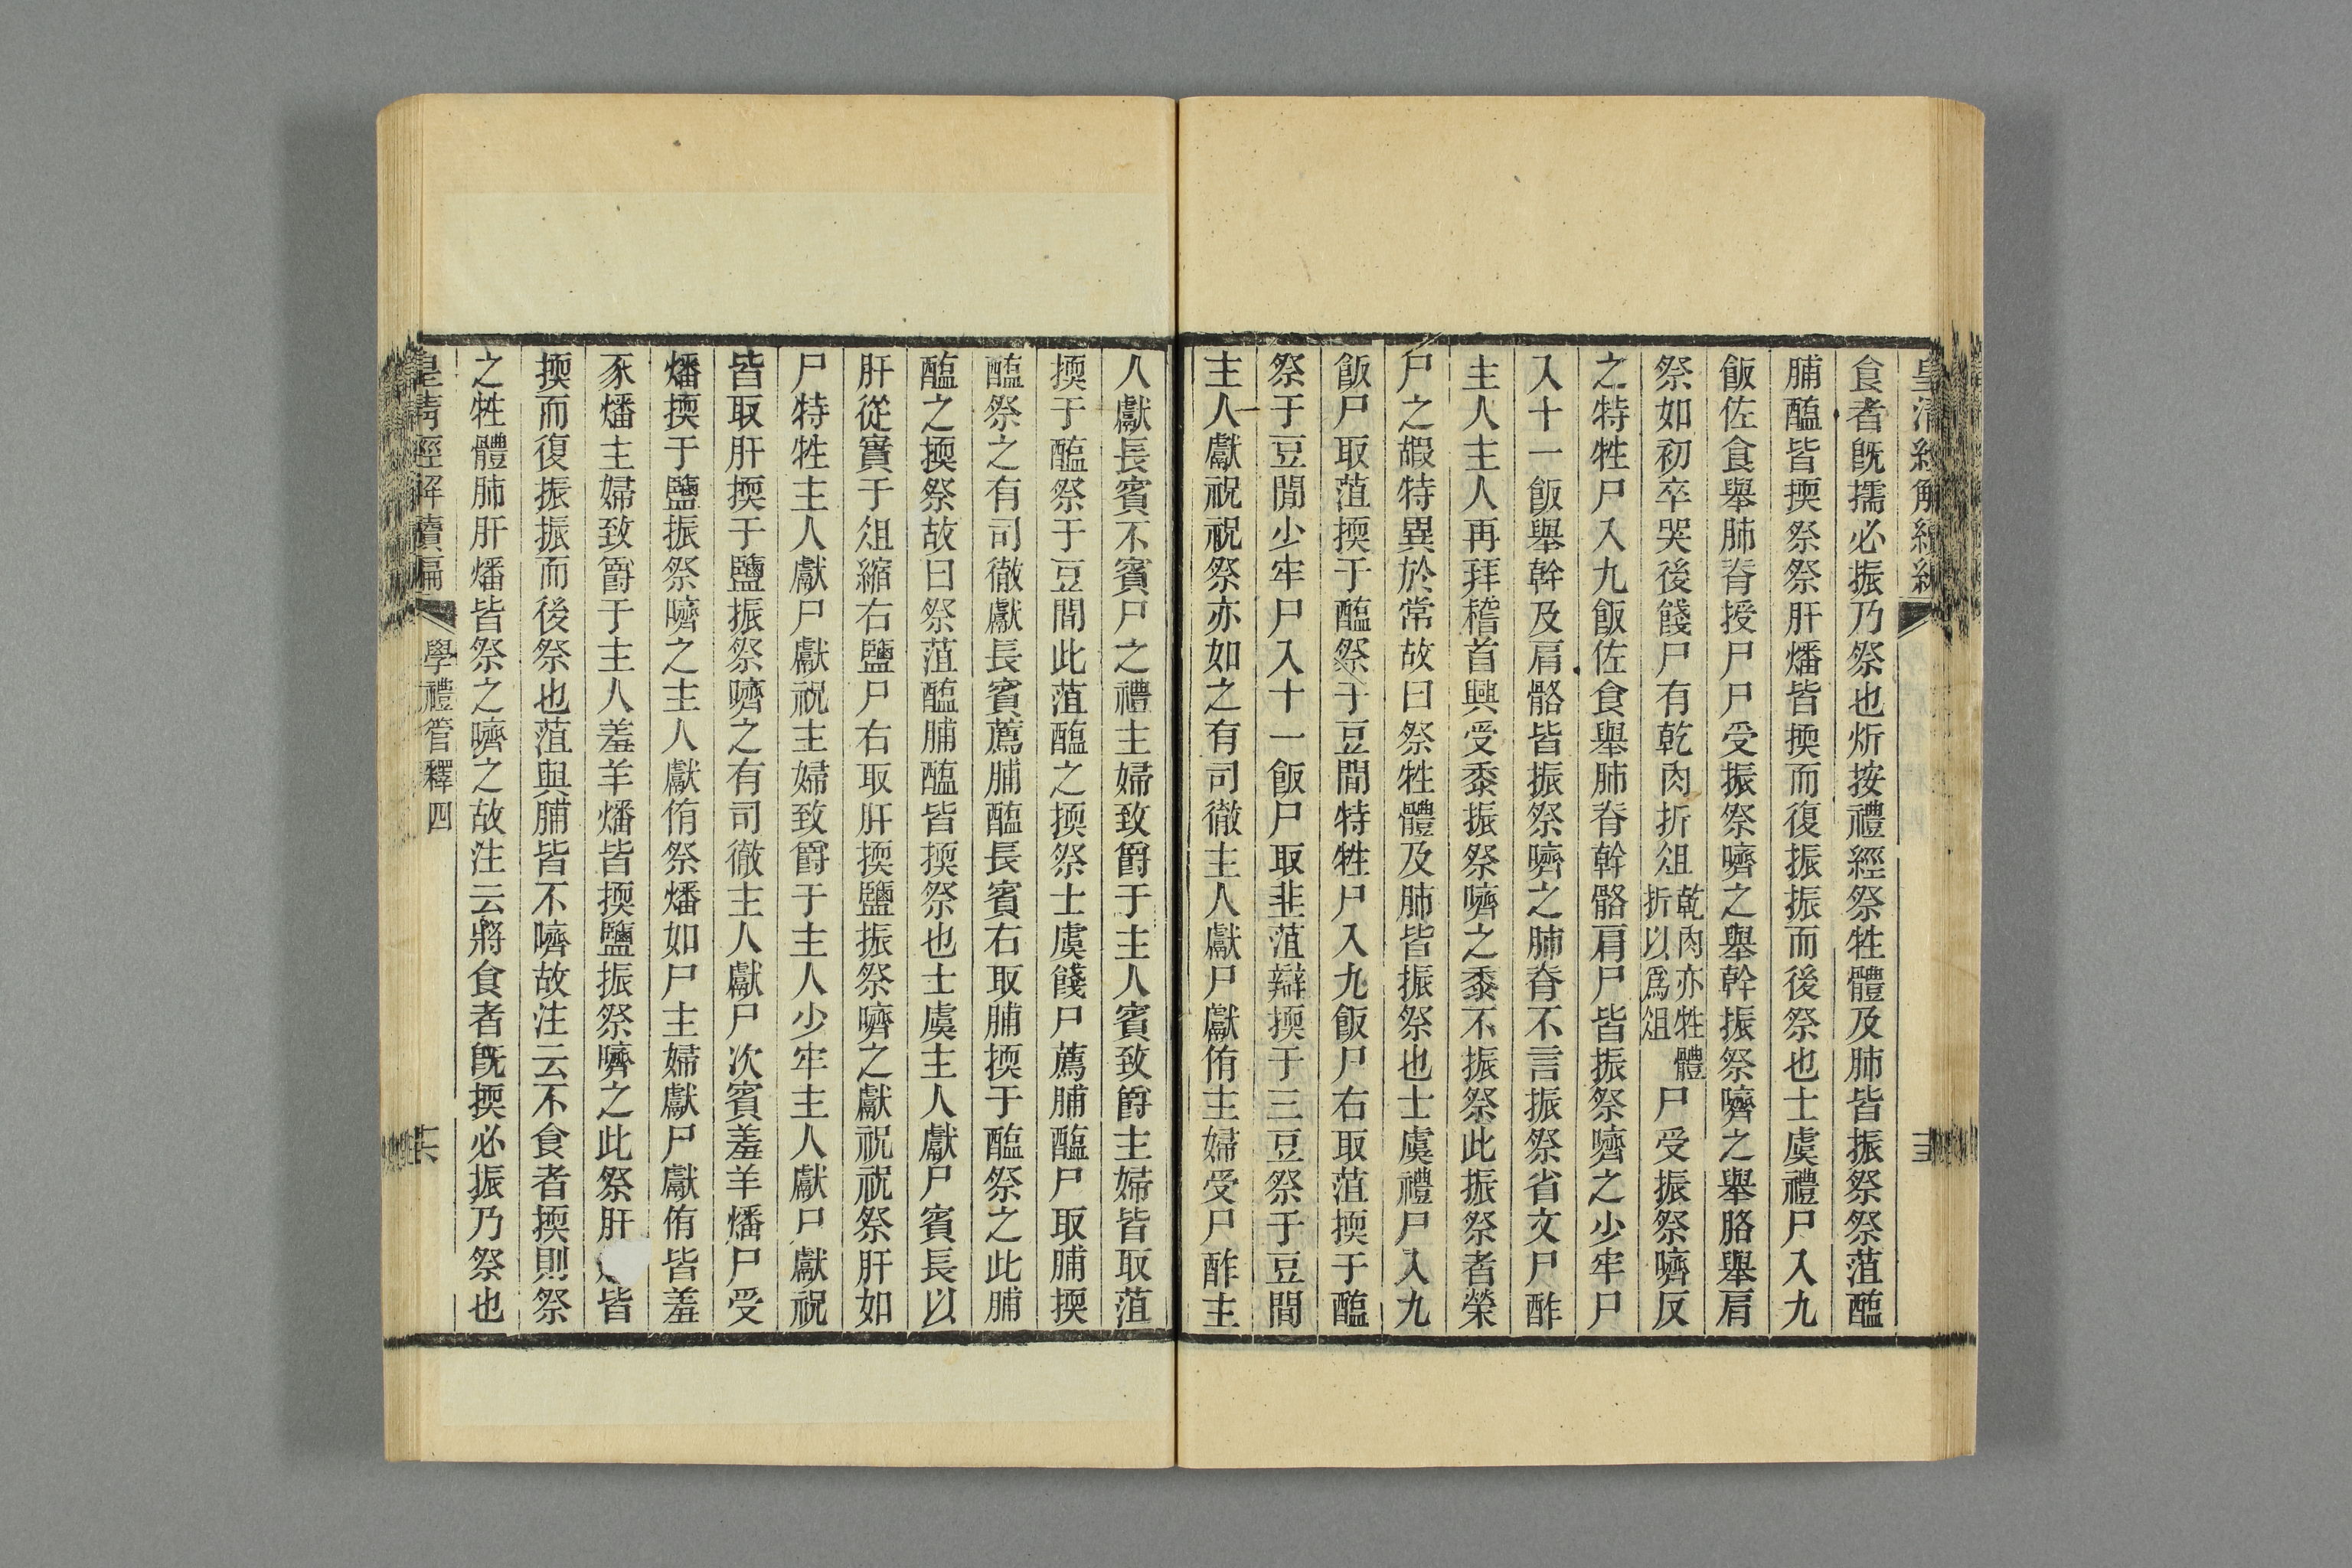 皇清經解續編
食者既擩必振乃祭也炘按禮經祭牲體及肺皆振祭祭菹醢
脯醢皆擩祭祭肝燔皆擩而復振振而後祭也士虞禮尸入九
飯佐食舉肺脊授尸尸受振祭嚌之舉幹振祭嚌之舉胳舉肩
祭如初卒哭後餞尸有乾肉折俎乾肉亦牲體折以爲俎尸受振祭嚌反
之特牲尸入九飯佐食舉肺脊幹骼肩尸皆振祭嚌之少牢尸
入十一飯舉幹及肩骼皆振祭嚌之肺脊不言振祭省文尸酢
主人主人再拜稽首興受黍振祭嚌之黍不振祭此振祭者榮
尸之嘏特異於常故曰祭牲體及肺皆振祭也士虞禮尸入九
飯尸取菹擩于醢祭于豆閒特牲尸入九飯尸右取菹擩于醢
祭于豆閒少牢尸入十一飯尸取韭菹辯擩于三豆祭于豆間
主人獻祝祝祭亦如之有司徹主人獻尸獻侑主婦受尸酢主
人獻長賓不賓尸之禮主婦致爵于主人賓致爵主婦皆取菹
擩于醢祭于豆間此菹醢之擩祭士虞餞尸薦脯醢尸取脯擩
醢祭之有司徹獻長賓薦脯醢長賓右取脯擩于醢祭之此脯
醢之擩祭故曰祭菹醢脯醢皆擩祭也士虞主人獻尸賓長以
肝從實于俎縮右鹽尸右取肝擩鹽振祭嚌之獻祝祝祭肝如
尸特牲主人獻尸獻祝主婦致爵于主人少牢主人獻尸獻祝
皆取肝擩于鹽振祭嚌之有司徹主人獻尸次賓羞羊燔尸受
燔擩于鹽振祭嚌之主人獻侑祭燔如尸主婦獻尸獻侑皆羞
豕燔主婦致爵于主人羞羊燔皆擩鹽振祭嚌之此祭肝皆
擩而復振振而後祭也菹與脯皆不嚌故注云不食者擩則祭
之牲體肺肝燔皆祭之嚌之故注云將食者既擩必振乃祭也
皇清經解續編 學禮管釋四